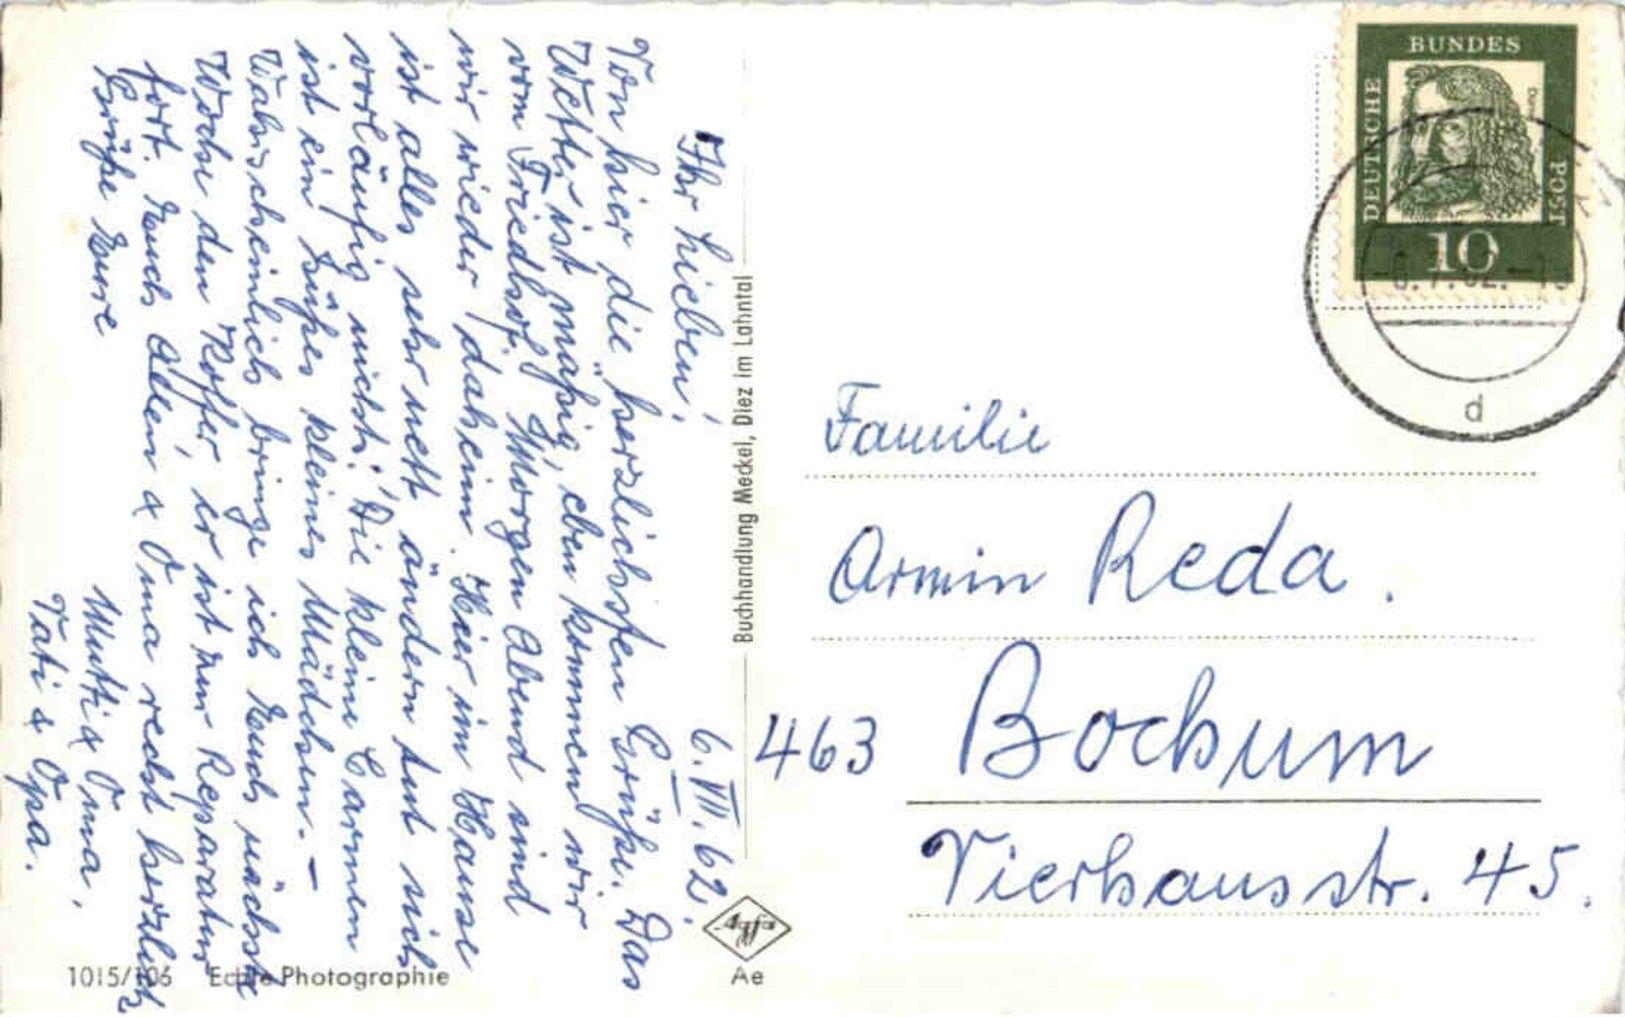 6. VII. 62.
Ihr Lieben!
Von hier die herzlichsten Grüße. Das
Wetter ist mäßig, eben kommen wir
vom Friedhof. Morgen Abend sind
wir wieder daheim. Hier im Hause
ist alles sehr nett, ändern tut sich
vorläufig nichts. Die kleine Carmen
ist ein süßes kleines Mädchen. –
Wahrscheinlich bringe ich Euch nächste
Woche den Koffer, er ist zur Reparatur
fort. Euch Allen & Oma recht herzlich
Grüße Eure
Mutti & Oma,
Vati & Opa.
Buchhandlung Meckel, Diez im Lahntal
Agfa
Ae
1015/106 Echte Photographie
DEUTSCHE BUNDES POST
10
d
Familie
Armin Reda.
463 Bochum
Vierhausstr. 45.